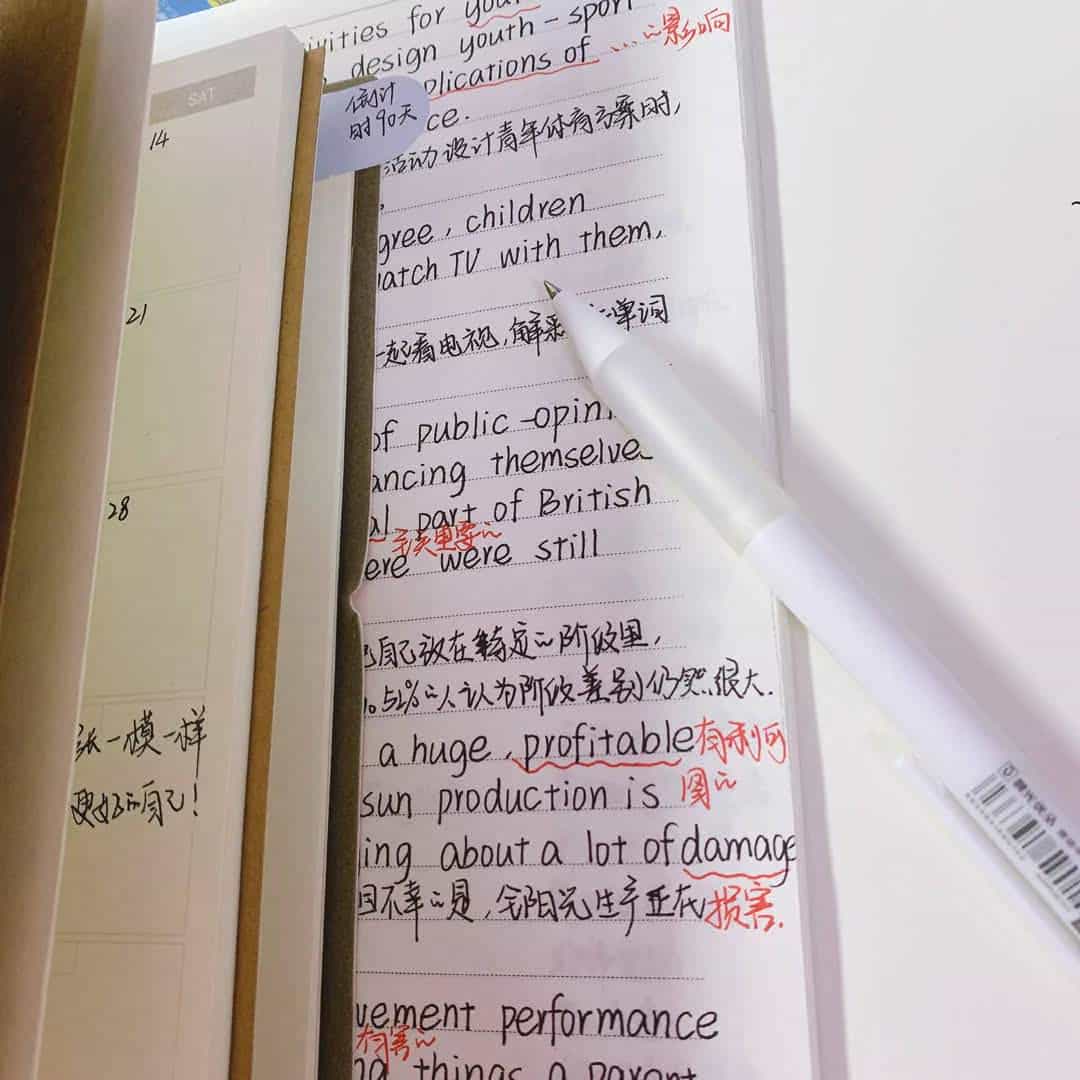 SAT
14
21
28
一模一样
更好的自己!
倒计
时90天
ivities for your
design youth-sport
plications of ...的影响
ce.
活动设计青年体育方案时,
gree, children
atch TV with them,
一起看电视,解释 单词
of public-opin
ancing themselve
al part of British
至关重要的
ere were still
自己放在特定的阶级里,
52%的人认为阶级差别仍然很大.
a huge, profitable 有利可
sun production is 图的
ing about a lot of damage
不幸的是, 阳光生产正在 损害.
vement performance
有害的
ng things a parent